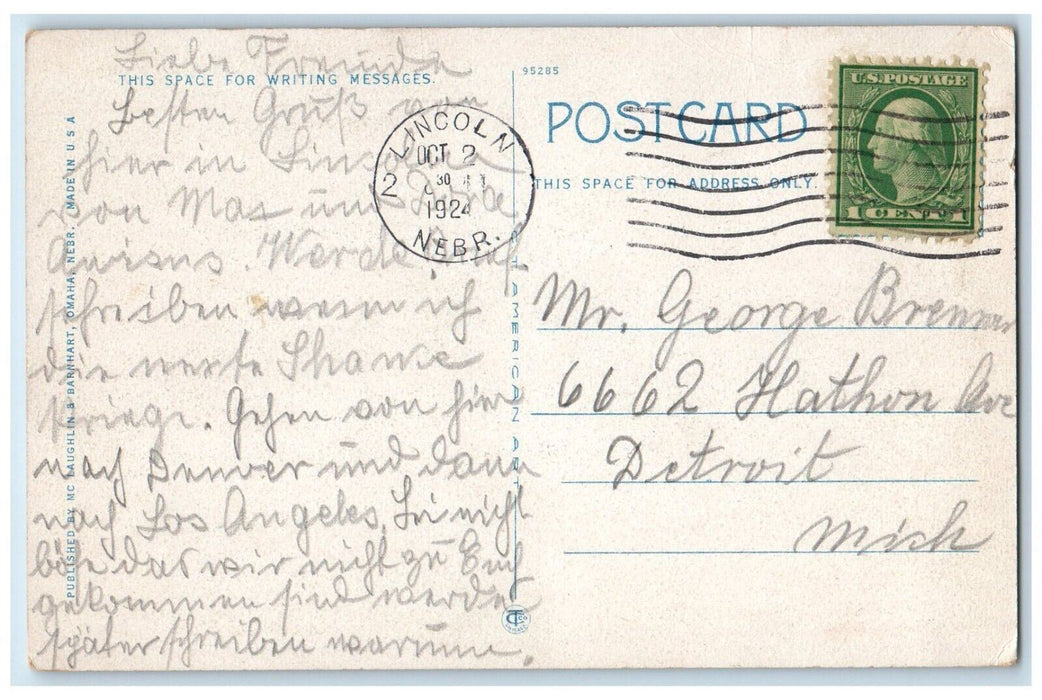 Liebe Freunde
THIS SPACE FOR WRITING MESSAGES.
besten Gruß von
hier in
von Max und
Werde Euch
schreiben wenn ich
die nexte Shanse
kriege. Gehen von hier
nach Denver und dann
nach Los Angeles. nicht
böse das wir nicht zu Euch
gekommen sind werde
später schreiben warum.
PUBLISHED BY MC LAUGHLIN & BARNHART, OMAHA, NEBR. MADE IN U.S.A
95285
LINCOLN
OCT 2
30
1924
NEBR.
2
POST CARD
THIS SPACE FOR ADDRESS ONLY.
U.S. POSTAGE
1 CENT 1
AMERICAN ART
Mr. George Brenner
6662 Hathon Ave
Detroit
Mich